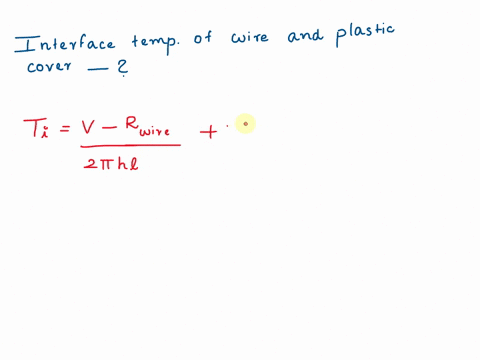 Interface temp. of wire and plastic
cover — ?
Ti = V − Rwire +
2πhl